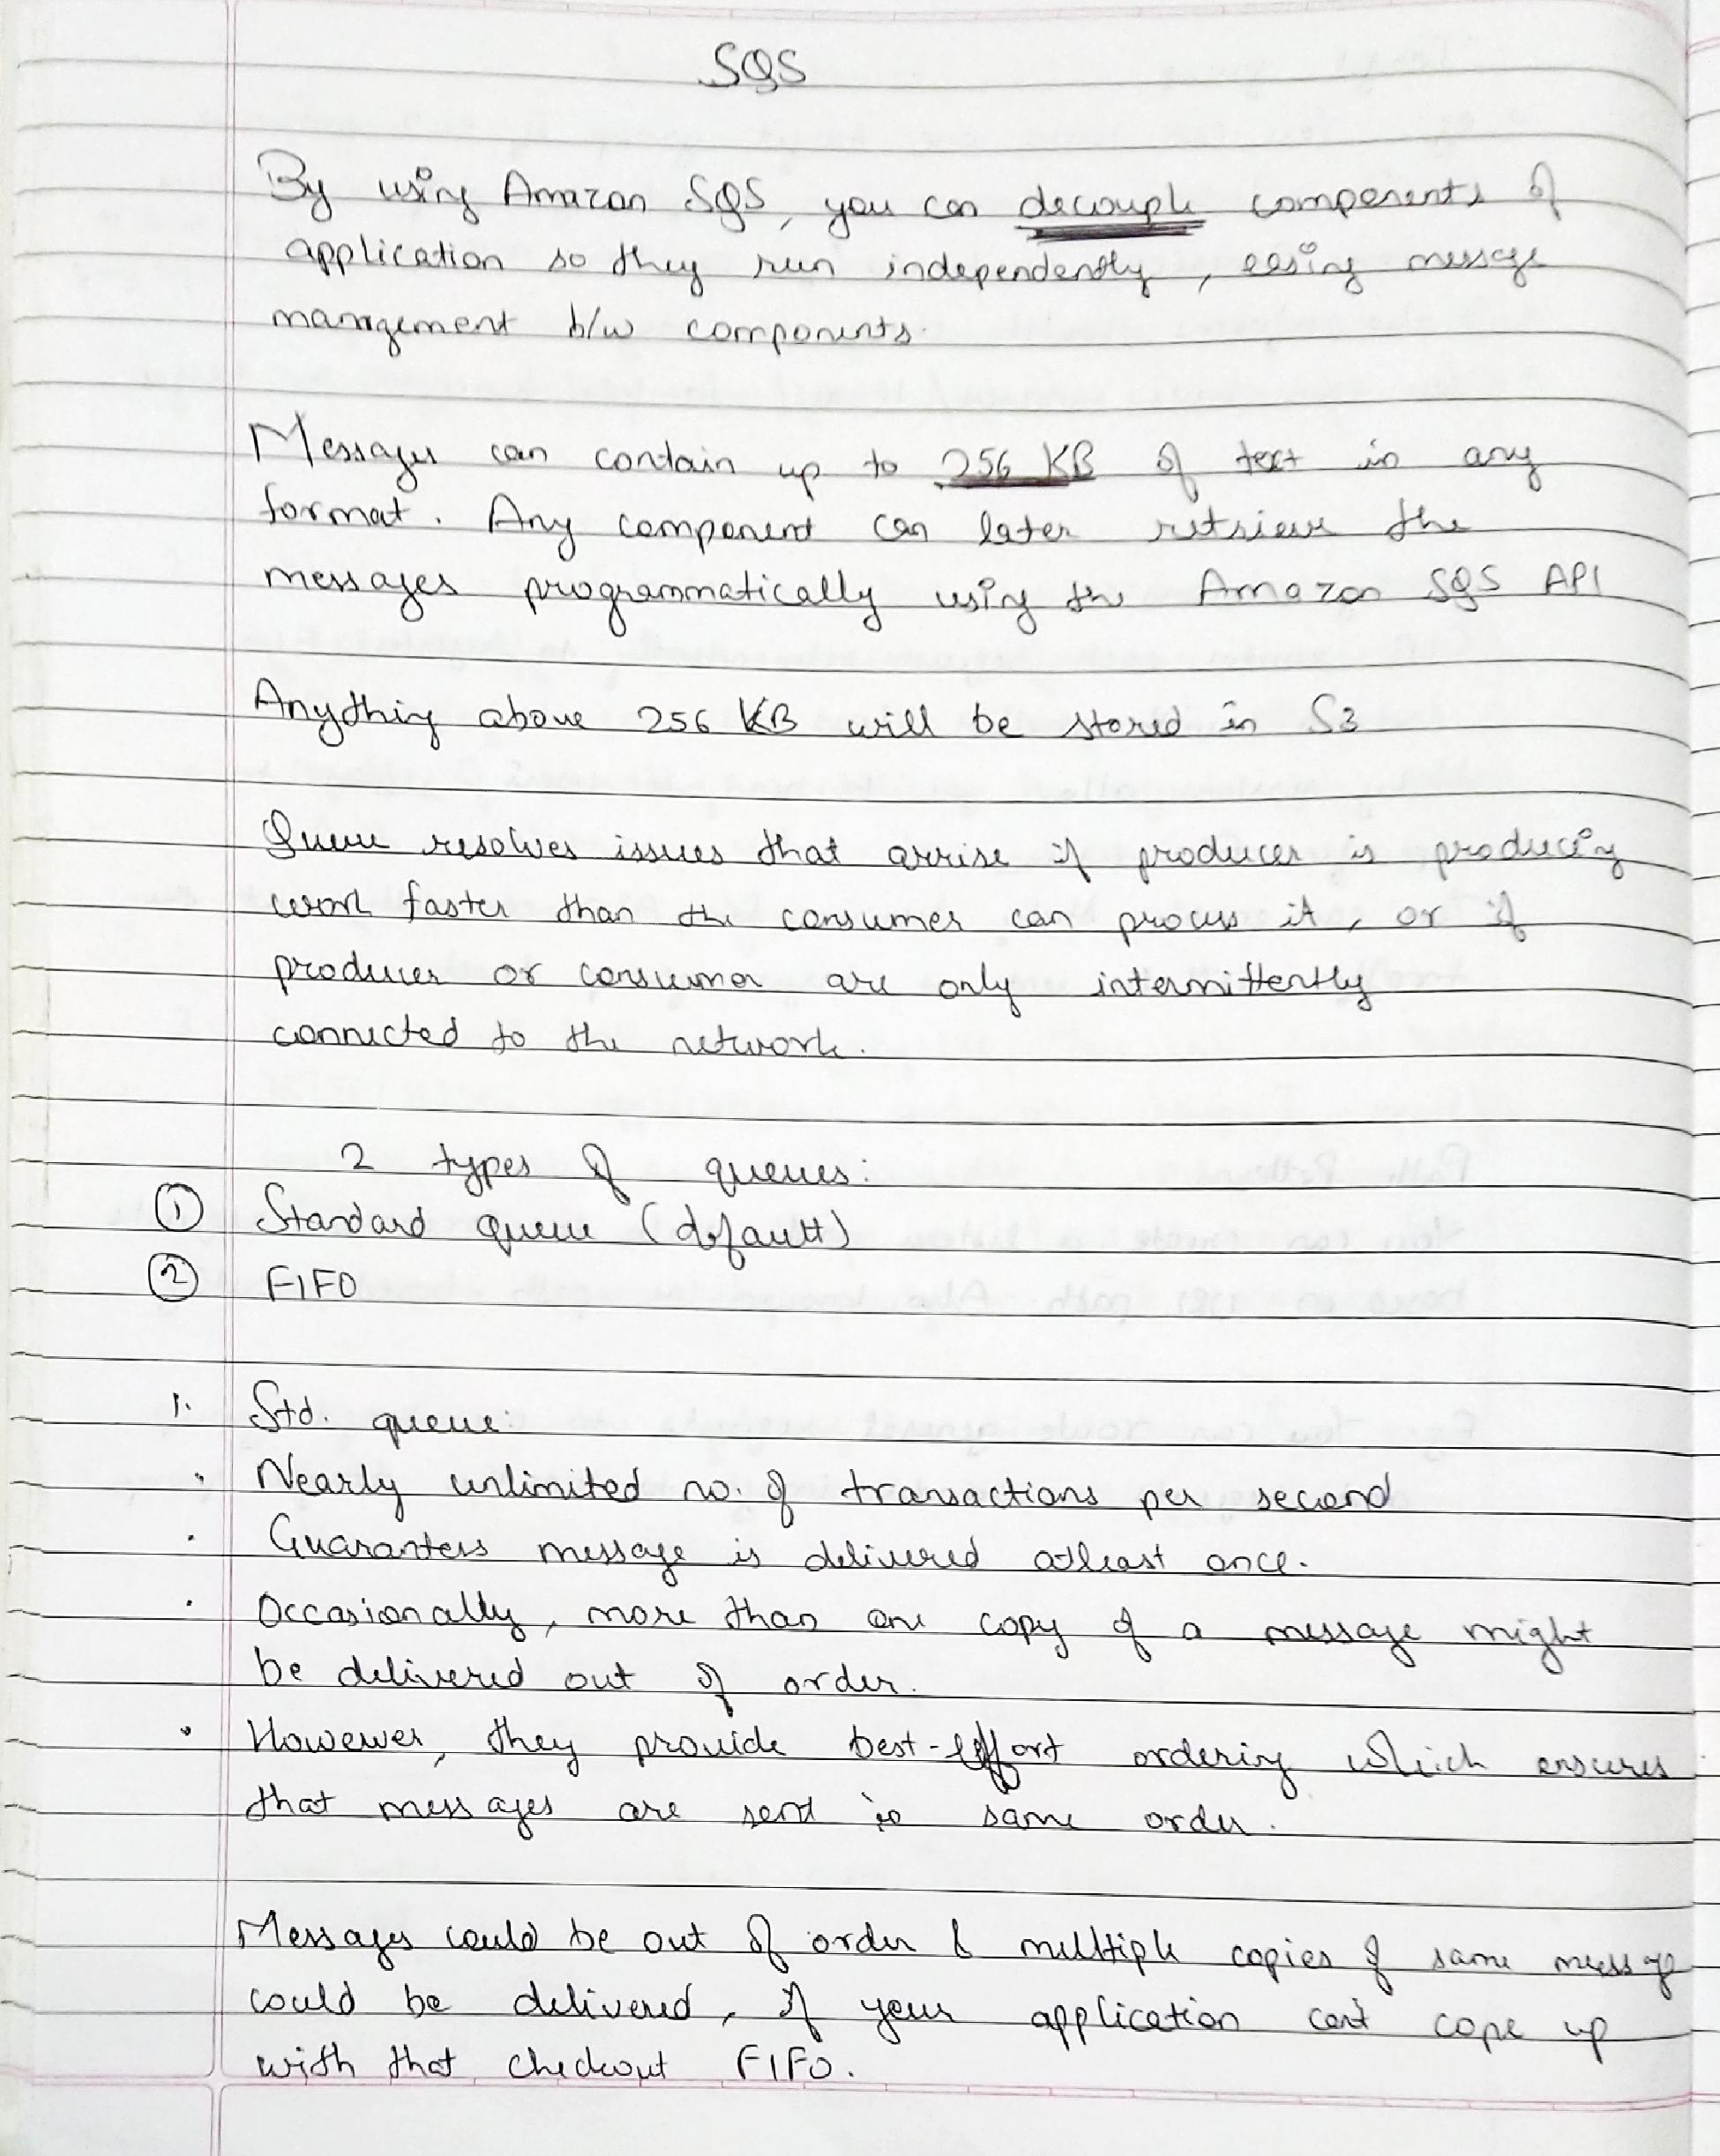 SQS
By using Amazon SQS, you can decouple components of
application so they run independently, easing message
management b/w components.
Messages can contain up to 256 KB of text in any
format. Any component can later retrieve the
messages programmatically using the Amazon SQS API
Anything above 256 KB will be stored in S3
Queue resolves issues that arrise if producer is producing
work faster than the consumer can process it, or if
producer or consumer are only intermittently
connected to the network.
2 types of queues:
① Standard queue (default)
② FIFO
1. Std. queue:
• Nearly unlimited no. of transactions per second
• Guarantess message is delivered atleast once.
• Occasionally, more than one copy of a message might
be delivered out of order.
• However, they provide best-effort ordering which ensures
that messages are send in same order.
Messages could be out of order & multiple copies of same message
could be delivered, if your application can't cope up
with that checkout FIFO.